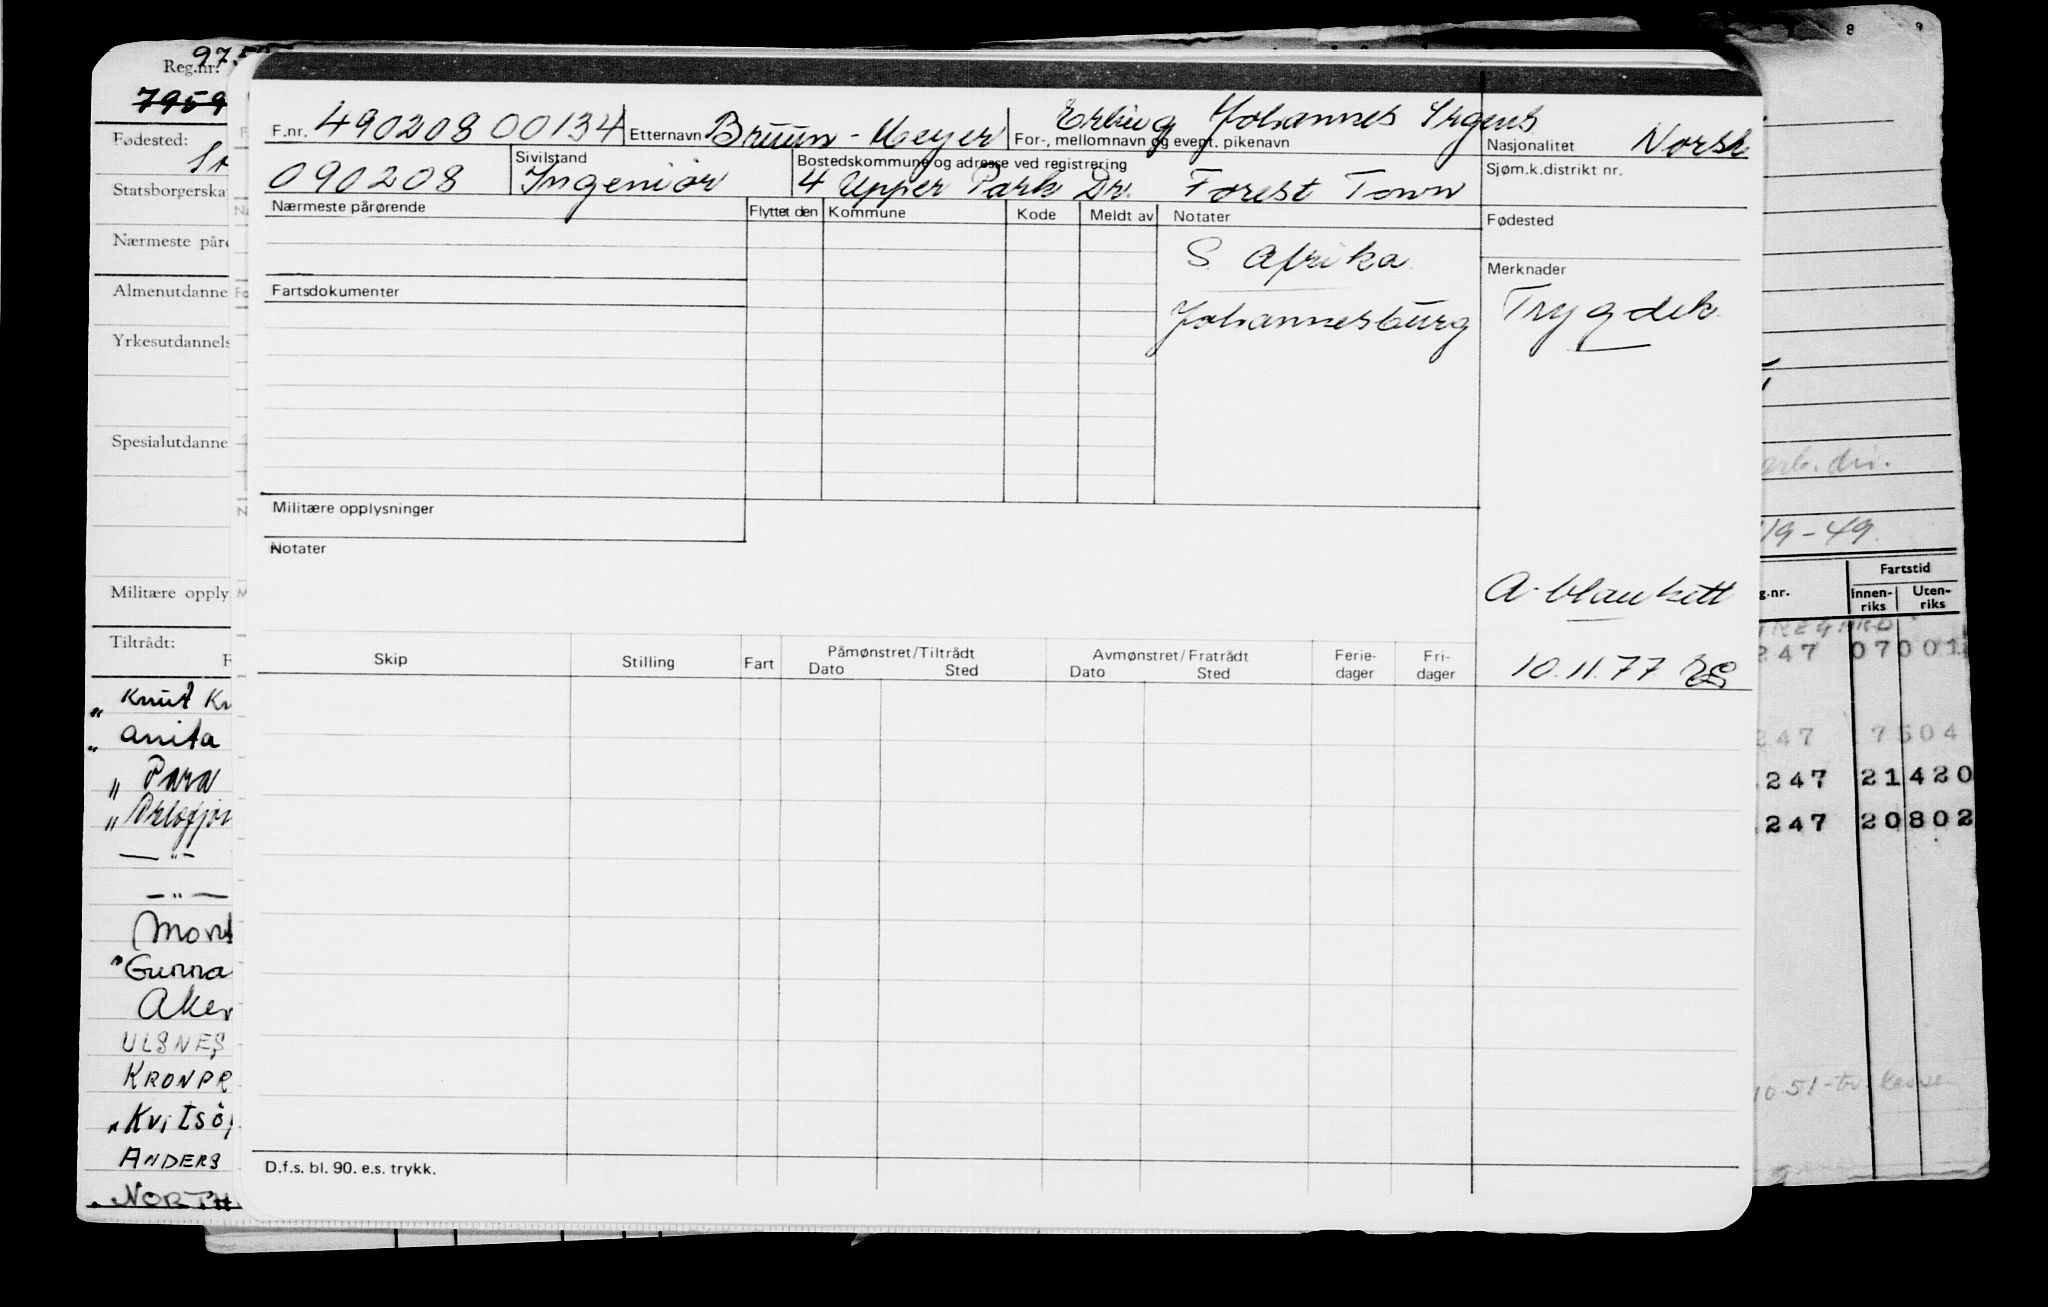 Reg.nr.
7959
F.nr. 490208 00134 Etternavn Bruun-Meyer For-, mellomnavn og event. pikenavn Erling Johannes Irgens Nasjonalitet Norsk
090208 Sivilstand Ingeniør Bostedskommune og adresse ved registrering 4 Upper Park Dr. Forest Town Sjøm.k.distrikt nr.
Nærmeste pårørende Flyttet den Kommune Kode Meldt av Notater Fødested
S. Afrika
Johannesburg
Merknader
Trygdek.
Fartsdokumenter
Militære opplysninger
Notater
A-blankett
10.11.77
Skip Stilling Fart Påmønstret/Tiltrådt Dato Sted Avmønstret/Fratrådt Dato Sted Ferie-dager Fri-dager
D.f.s. bl. 90. e.s. trykk.
Fødested:
Statsborgerska
Nærmeste påre
Almenutdanne
Yrkesutdannels
Spesialutdanne
Militære opply
Tiltrådt:
Knut Kn
Anita
" Para
— " —
— " —
Gunna
Aker
ULSNES
KRONPR
Kvitsö
ANDERS
NORTH
8 9
arb.div.
19-49.
g.nr. Fartstid
Innen-riks Uten-riks
247 07001
247 7504
247 21420
247 20802